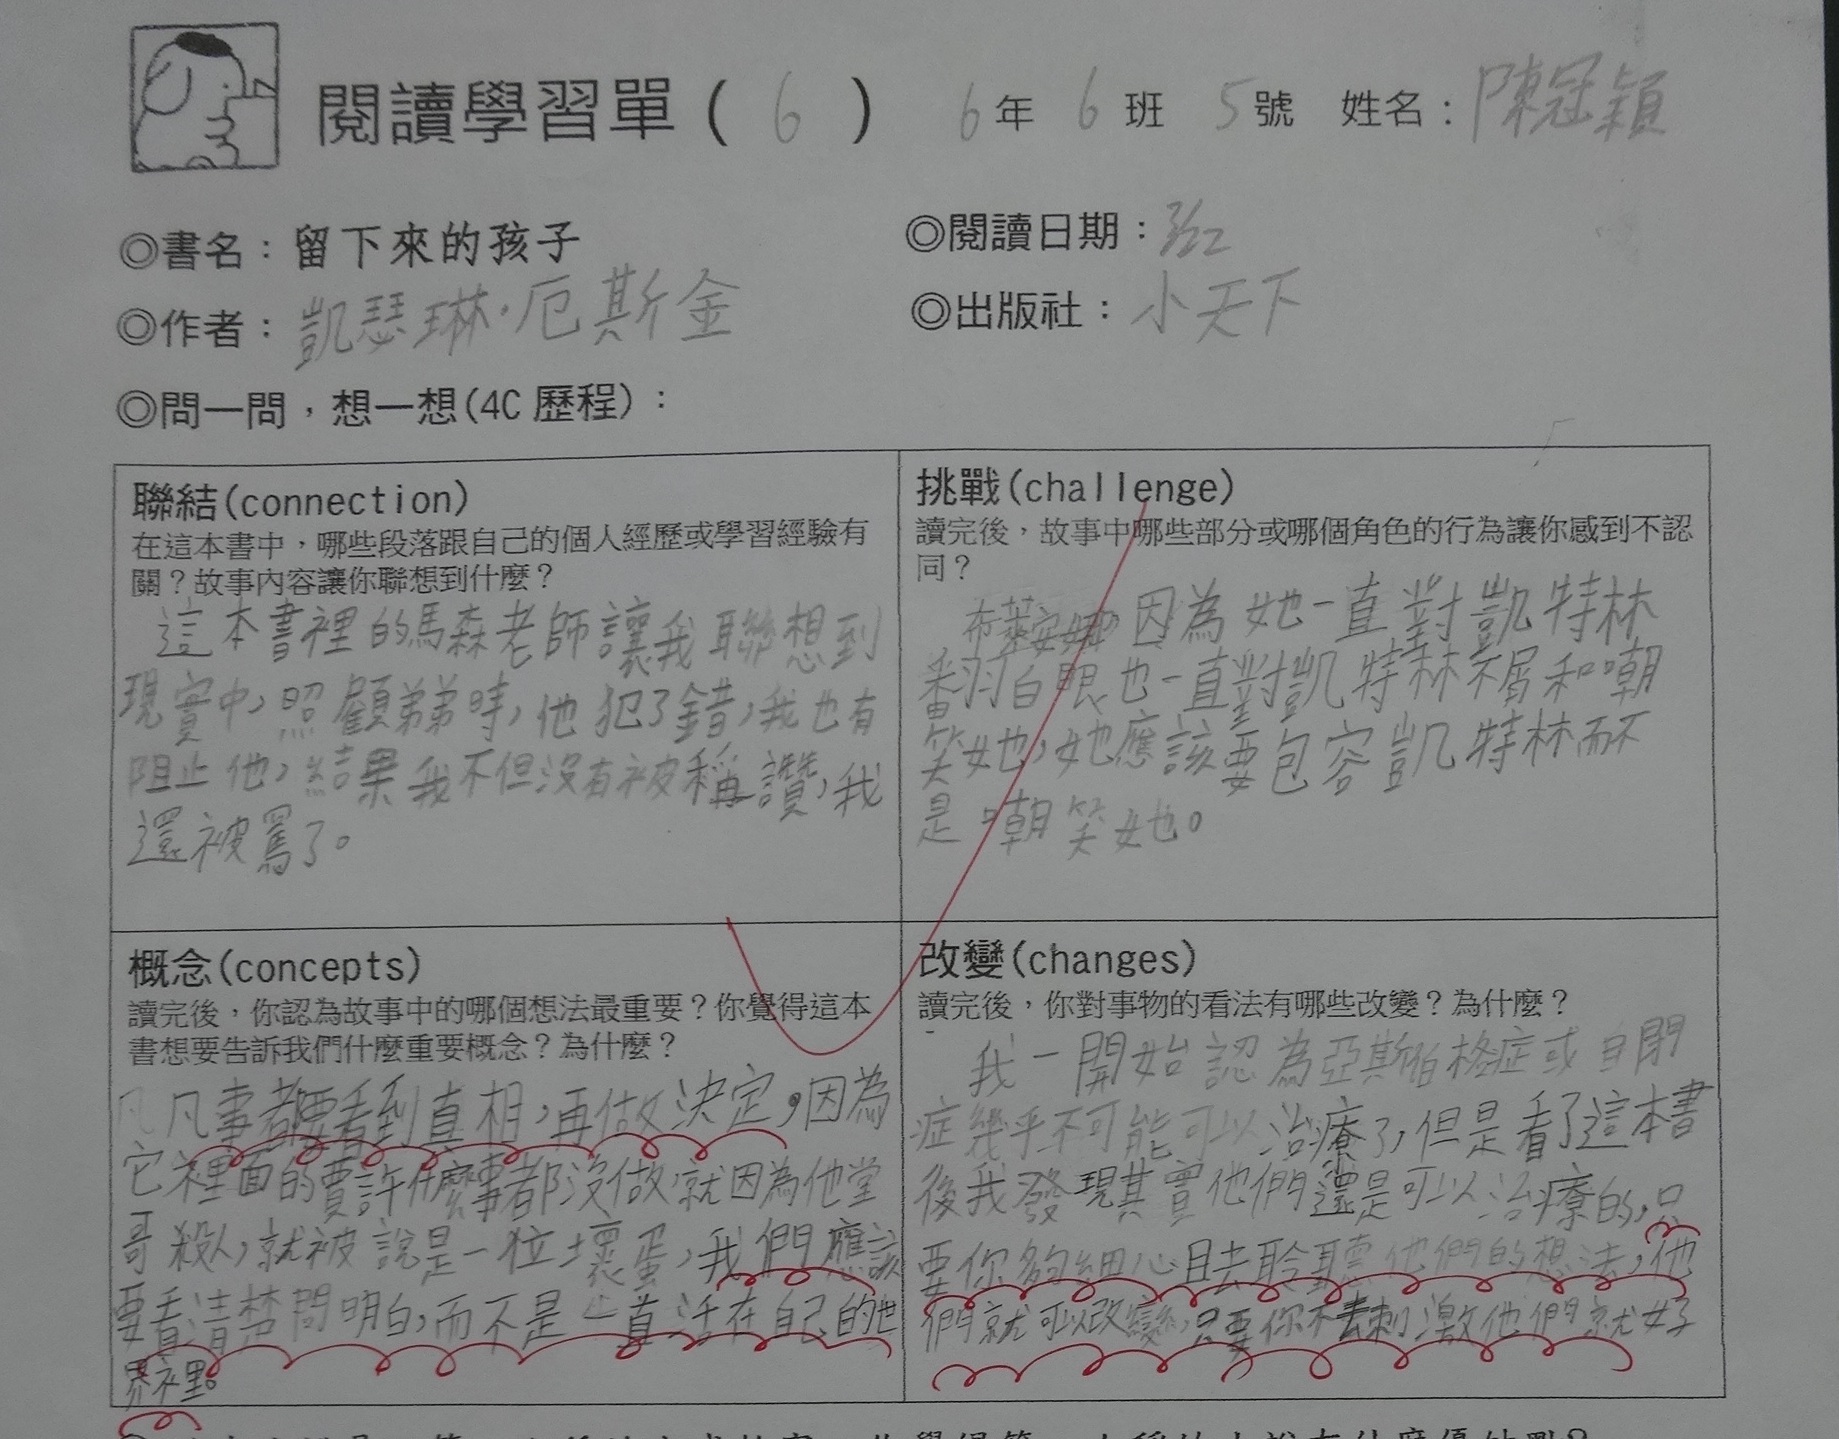 閱讀學習單( 6 ) 6年 6班 5號 姓名：陳冠穎
◎書名：留下來的孩子
◎閱讀日期：
◎作者：凱瑟琳·厄斯金
◎出版社：小天下
◎問一問，想一想(4C 歷程)：
聯結(connection)
在這本書中，哪些段落跟自己的個人經歷或學習經驗有
關？故事內容讓你聯想到什麼？
這本書裡的馬森老師讓我聯想到
現實中，照顧弟弟時，他犯了錯，我也有
阻止他，結果我不但沒有被稱讚，我
還被罵了。
挑戰(challenge)
讀完後，故事中哪些部分或哪個角色的行為讓你感到不認
同？
布萊安娜因為她一直對凱特林
翻白眼也一直對凱特林不屑和嘲
笑她，她應該要包容凱特林而不
是嘲笑她。
概念(concepts)
讀完後，你認為故事中的哪個想法最重要？你覺得這本
書想要告訴我們什麼重要概念？為什麼？
凡事都要看到真相，再做決定，因為
它裡面的賈許什麼事都沒做，就因為他堂
哥殺人，就被說是一位壞蛋，我們應該
要看清楚問明白，而不是一直活在自己的世
界裡。
改變(changes)
讀完後，你對事物的看法有哪些改變？為什麼？
我一開始認為亞斯伯格症或自閉
症幾乎不可能可以治療了，但是看了這本書
後我發現其實他們還是可以治療的，只
要你夠細心且去聆聽他們的想法，他
們就可以改變，只要你不去刺激他們就好